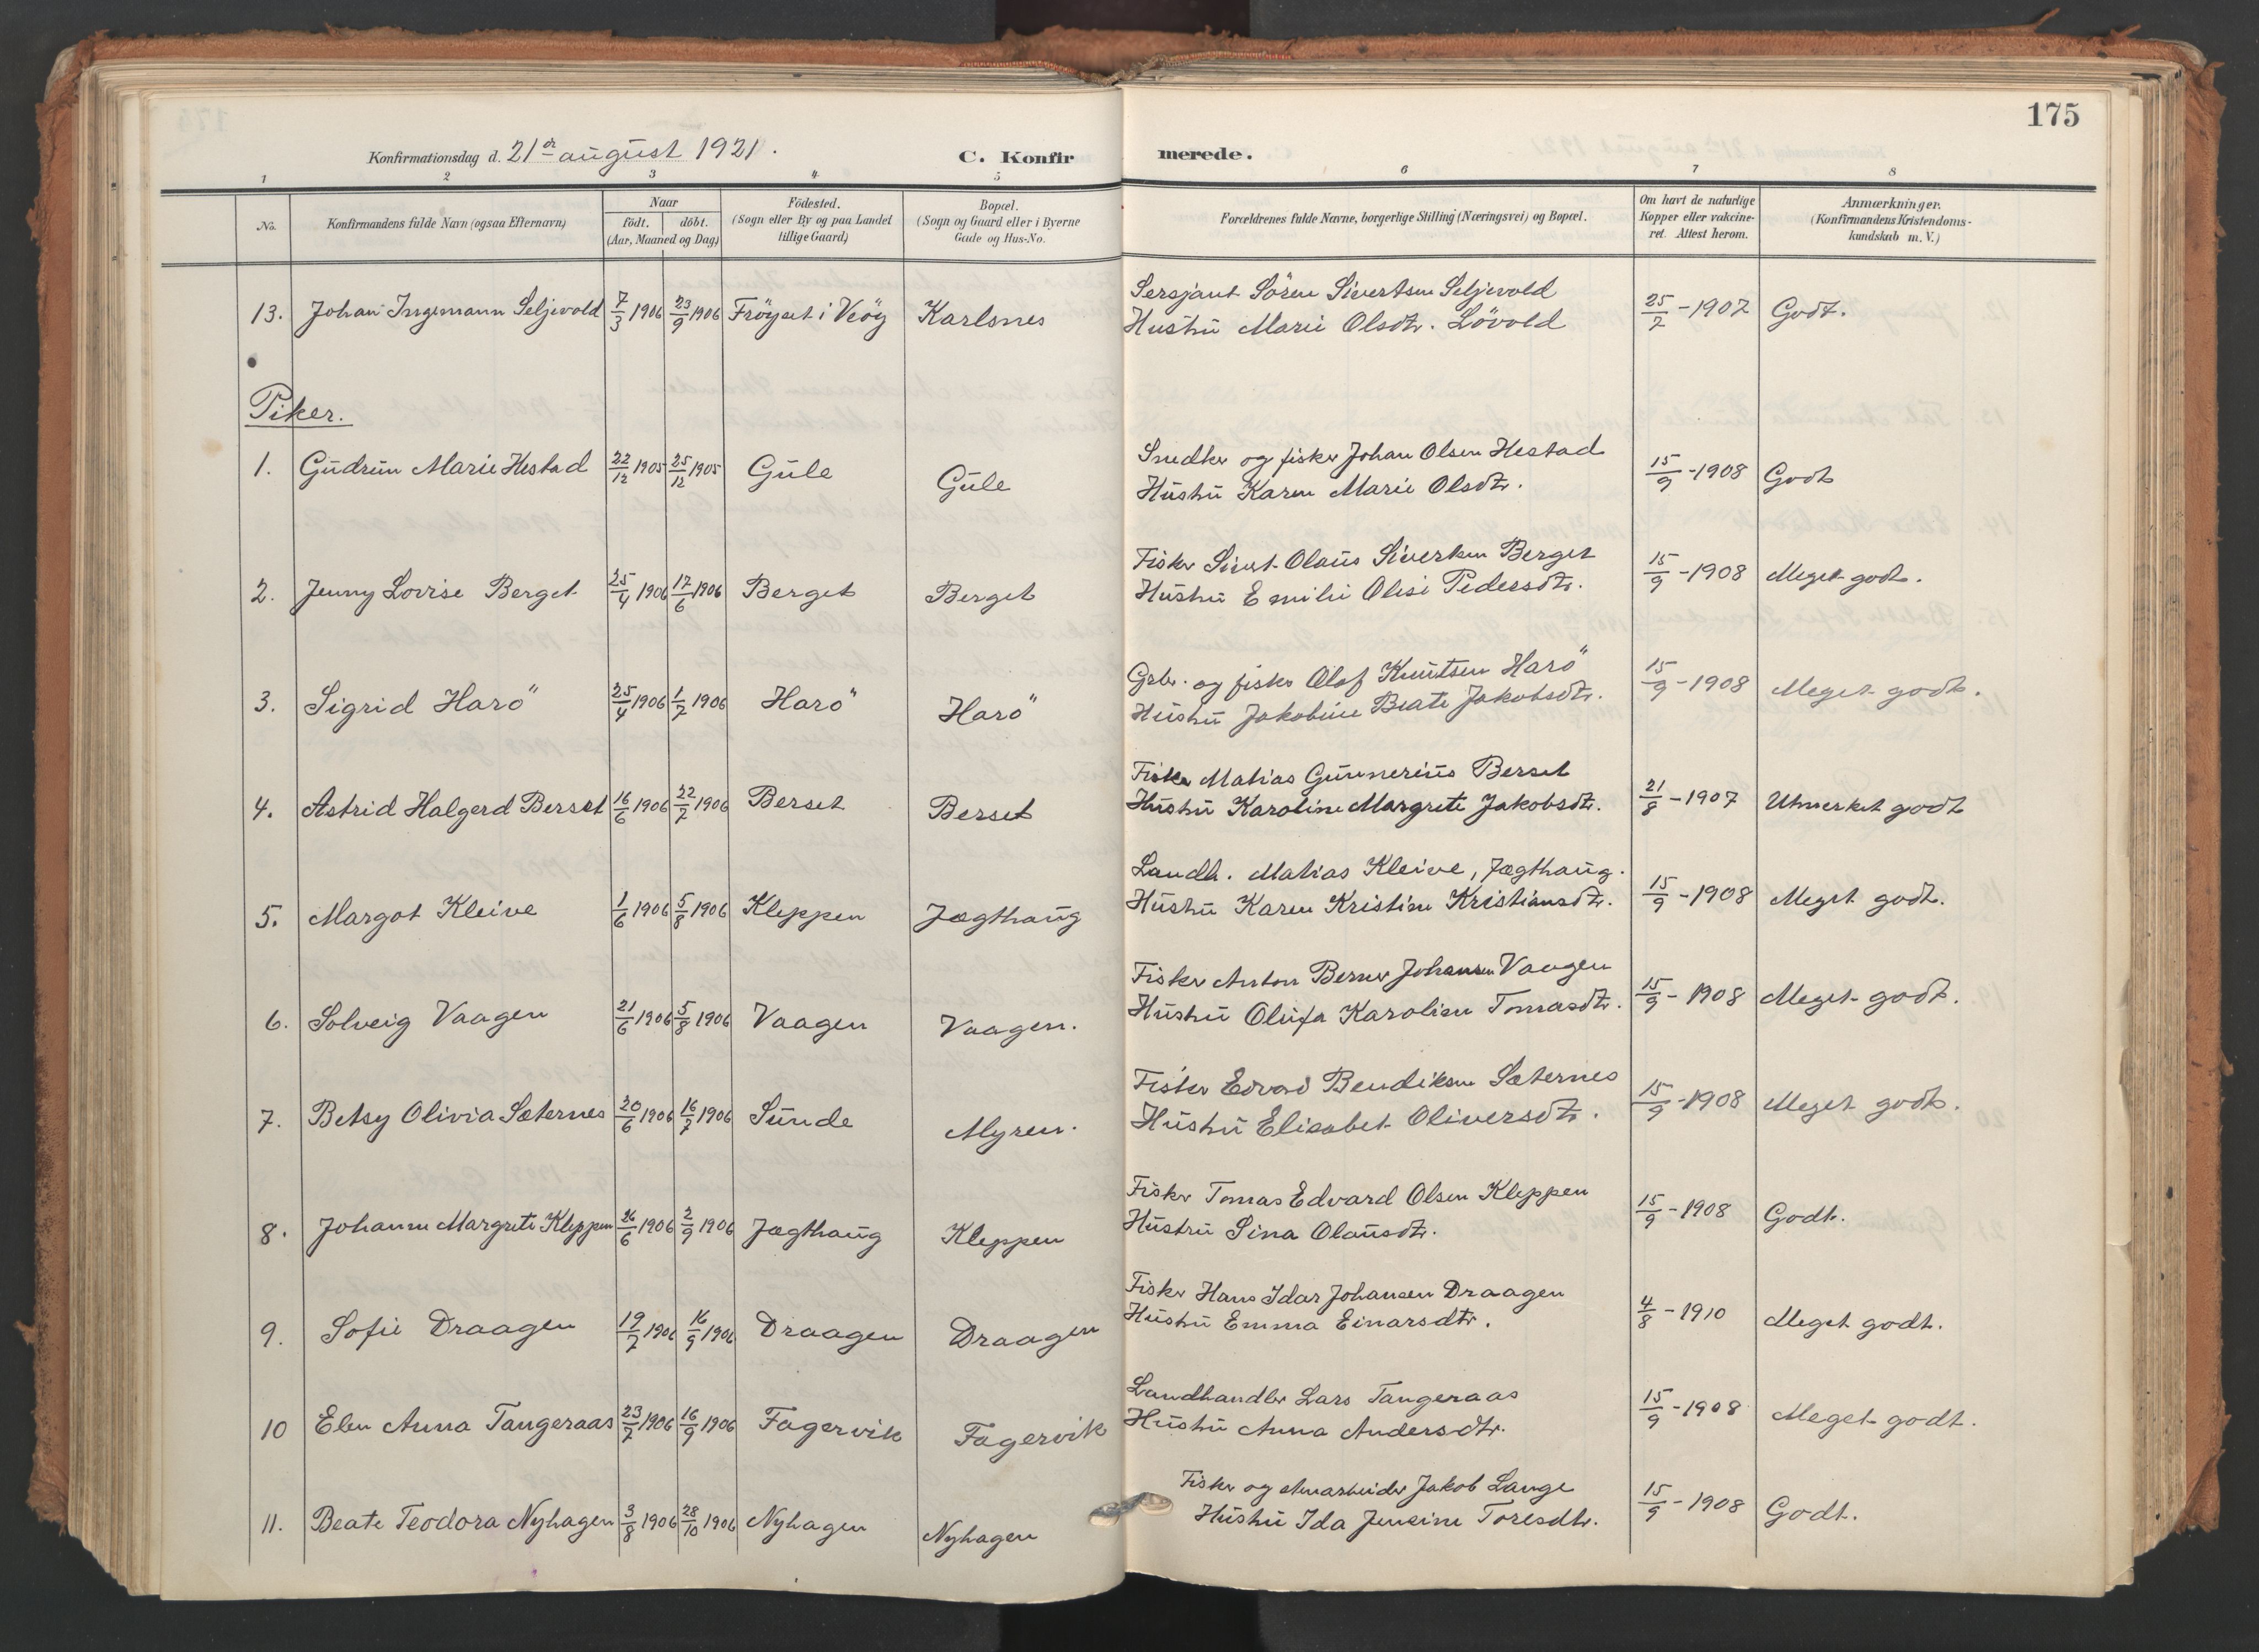 175
Konfirmationsdag d. 21de august 1921.
C. Konfirmerede.
1 2 3 4 5 6 7 8
No. Konfirmandens fulde Navn (ogsaa Efternavn) Naar født. døbt. (Aar, Maaned og Dag) Fødested. (Sogn eller By og paa Landet tillige Gaard) Bopæl. (Sogn og Gaard eller i Byerne Gade og Hus-No. Forældrenes fulde Navne, borgerlige Stilling (Næringsvei) og Bopæl. Om havt de naturlige Kopper eller vakcineret. Attest herom. Anmærkninger. (Konfirmandens Kristendomskundskab m. V.)
13. Johan Ingemann Seljevold 7/3 1906 23/9 1906 Fröyset i Veöy Karlsnes Sersjant Sören Sivertsen Seljevold 25/7 - 1907 Godt.
Hustru Marie Olsdtr. Lövold
Piker.
1. Gudrun Marie Hestad 22/12 1905 25/12 1905 Gule Gule Snedker og fisker Johan Olsen Hestad 15/9 - 1908 Godt
Hustru Karen Marie Olsdtr.
2. Jenny Lovise Berget 25/4 1906 17/6 1906 Berget Berget Fisker Sivert Olaus Siverksen Berget 15/9 - 1908 Meget godt.
Hustru Emilie Olisi Pedersdtr.
3. Sigrid Harö 25/4 1906 1/7 1906 Harö Harö Grbr. og fisker Olaf Knutsen Harö 15/9 - 1908 Meget godt.
Hustru Jakobine Beate Jakobsdtr.
4. Astrid Halgerd Berset 16/6 1906 22/7 1906 Berset Berset Fisker Matias Gunnerius Berset 21/8 - 1907 Utmerket godt
Hustru Karoline Margrete Jakobsdtr.
5. Margot Kleive 1/6 1906 5/8 1906 Kleppen Jægthaug Landh. Matias Kleive, Jægthaug. 15/9 - 1908 Meget godt.
Hustru Karen Kristine Kristiansdtr.
6. Solveig Vaagen 21/6 1906 5/8 1906 Vaagen Vaagen. Fisker Anton Berner Johansen Vaagen 15/9 - 1908 Meget godt.
Hustru Olufa Karoline Tomasdtr.
7. Betsy Olivia Sæternes 20/6 1906 16/7 1906 Sunde Myren. Fisker Edvard Bendiksen Sæternes 15/9 - 1908 Meget godt.
Hustru Elisabet Oliversdtr.
8. Johanne Margrete Kleppen 26/6 1906 2/9 1906 Jægthaug Kleppen Fisker Tomas Edvard Olsen Kleppen 15/9 - 1908 Godt.
Hustru Sina Olausdtr.
9. Sofie Draagen 19/7 1906 16/9 1906 Draagen Draagen Fisker Hans Idar Johansen Draagen 4/8 - 1910 Meget godt.
Hustru Emma Einarsdtr.
10 Elen Anna Tangeraas 23/7 1906 16/9 1906 Fagervik Fagervik Landhandler Lars Tangeraas 15/9 - 1908 Meget godt.
Hustru Anna Andersdtr.
11. Beate Teodora Nyhagen 3/8 1906 28/10 1906 Nyhagen Nyhagen Fisker og Jakob Lange 15/9 - 1908 Godt.
Hustru Ida Jensine Toresdtr.